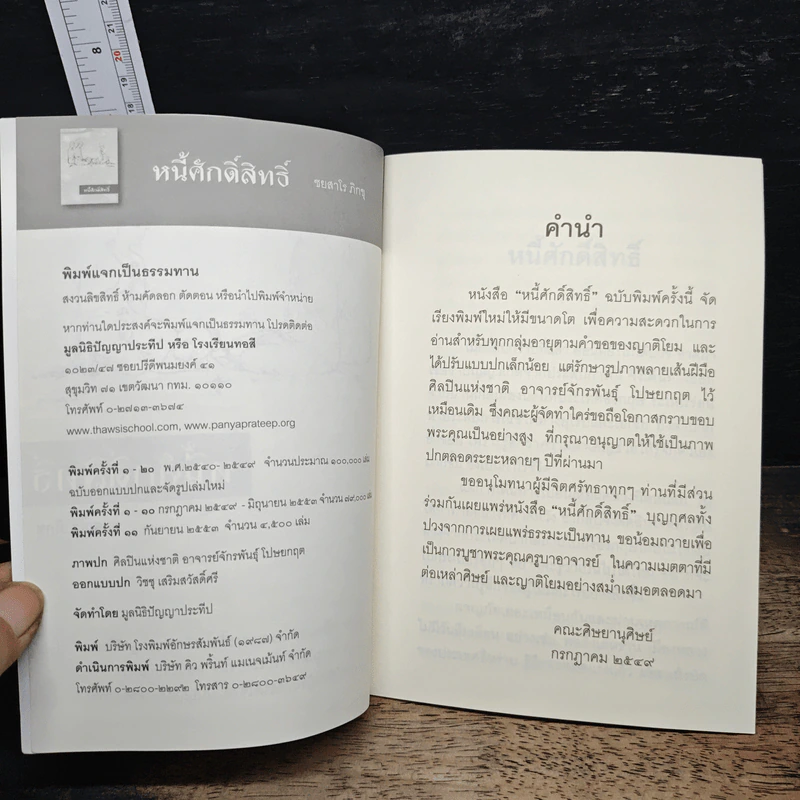 8
21
20
19
18
หนี้ศักดิ์สิทธิ์
ชยสาโร ภิกขุ
พิมพ์แจกเป็นธรรมทาน
สงวนลิขสิทธิ์ ห้ามคัดลอก ตัดตอน หรือนำไปพิมพ์จำหน่าย
หากท่านใดประสงค์จะพิมพ์แจกเป็นธรรมทาน โปรดติดต่อ
มูลนิธิปัญญาประทีป หรือ โรงเรียนทอสี
๑๐๒๓/๔๗ ซอยปรีดีพนมยงค์ ๔๑
สุขุมวิท ๗๑ เขตวัฒนา กทม. ๑๐๑๑๐
โทรศัพท์ ๐-๒๗๑๓-๓๖๗๔
www.thawsischool.com, www.panyaprateep.org
พิมพ์ครั้งที่ ๑ - ๒๐ พ.ศ.๒๕๔๐- ๒๕๔๙ จำนวนประมาณ ๑๐๐,๐๐๐ เล่ม
ฉบับออกแบบปกและจัดรูปเล่มใหม่
พิมพ์ครั้งที่ ๑ - ๑๐ กรกฎาคม ๒๕๔๙ - มิถุนายน ๒๕๕๓ จำนวน ๗๙,๐๐๐ เล่ม
พิมพ์ครั้งที่ ๑๑ กันยายน ๒๕๕๓ จำนวน ๔,๕๐๐ เล่ม
ภาพปก ศิลปินแห่งชาติ อาจารย์จักรพันธุ์ โปษยกฤต
ออกแบบปก วิชชุ เสริมสวัสดิ์ศรี
จัดทำโดย มูลนิธิปัญญาประทีป
พิมพ์ บริษัท โรงพิมพ์อักษรสัมพันธ์ (๑๙๘๗) จำกัด
ดำเนินการพิมพ์ บริษัท คิว พริ้นท์ แมเนจเม้นท์ จำกัด
โทรศัพท์ ๐-๒๘๐๐-๒๒๙๒ โทรสาร ๐-๒๘๐๐-๓๖๔๙
คำนำ
หนังสือ “หนี้ศักดิ์สิทธิ์” ฉบับพิมพ์ครั้งนี้ จัด
เรียงพิมพ์ใหม่ให้มีขนาดโต เพื่อความสะดวกในการ
อ่านสำหรับทุกกลุ่มอายุตามคำขอของญาติโยม และ
ได้ปรับแบบปกเล็กน้อย แต่รักษารูปภาพลายเส้นฝีมือ
ศิลปินแห่งชาติ อาจารย์จักรพันธุ์ โปษยกฤต ไว้
เหมือนเดิม ซึ่งคณะผู้จัดทำใคร่ขอถือโอกาสกราบขอบ
พระคุณเป็นอย่างสูง ที่กรุณาอนุญาตให้ใช้เป็นภาพ
ปกตลอดระยะหลายๆ ปีที่ผ่านมา
ขออนุโมทนาผู้มีจิตศรัทธาทุกๆ ท่านที่มีส่วน
ร่วมกันเผยแพร่หนังสือ “หนี้ศักดิ์สิทธิ์” บุญกุศลทั้ง
ปวงจากการเผยแพร่ธรรมะเป็นทาน ขอน้อมถวายเพื่อ
เป็นการบูชาพระคุณครูบาอาจารย์ ในความเมตตาที่มี
ต่อเหล่าศิษย์ และญาติโยมอย่างสม่ำเสมอตลอดมา
คณะศิษยานุศิษย์
กรกฎาคม ๒๕๔๙